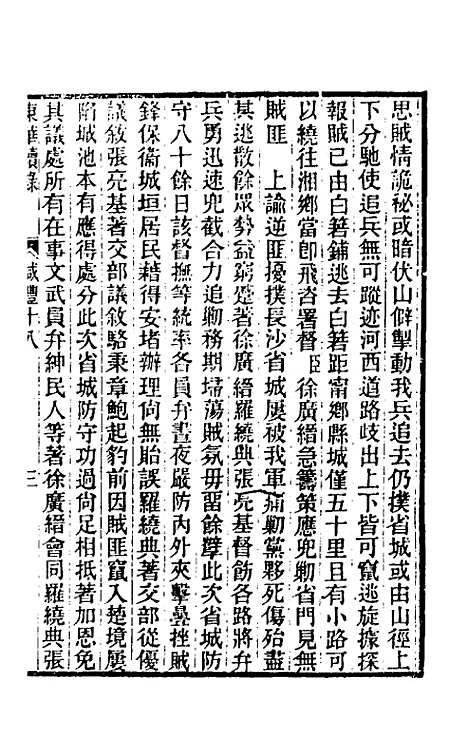 思賊情詭秘或暗伏山僻掣動我兵追去仍撲省城或由山徑上
下分馳使追兵無可蹤迹河西道路歧出上下皆可竄逃旋據探
報賊已由白箬鋪逃去白箬距甯鄉縣城僅五十里且有小路可
以繞往湘鄉當卽飛咨署督臣徐廣縉急籌策應兜剿省門見無
賊匪 上諭逆匪擾撲長沙省城屢被我軍痛剿黨夥死傷殆盡
其逃散餘眾勢益窮蹙著徐廣縉羅繞典張亮基督飭各路將弁
兵勇迅速兜截合力追剿務期埽蕩賊氛毋畱餘孽此次省城防
守八十餘日該督撫等統率各員弁晝夜嚴防內外夾擊曡挫賊
鋒保衞城垣居民藉得安堵辦理尙無貽誤羅繞典著交部從優
議敘張亮基著交部議敘駱秉章鮑起豹前因賊匪竄入楚境屢
陷城池本有應得處分此次省城防守功過尙足相抵著加恩免
其議處所有在事文武員弁紳民人等著徐廣縉會同羅繞典張
東華續錄 咸豐十八 三